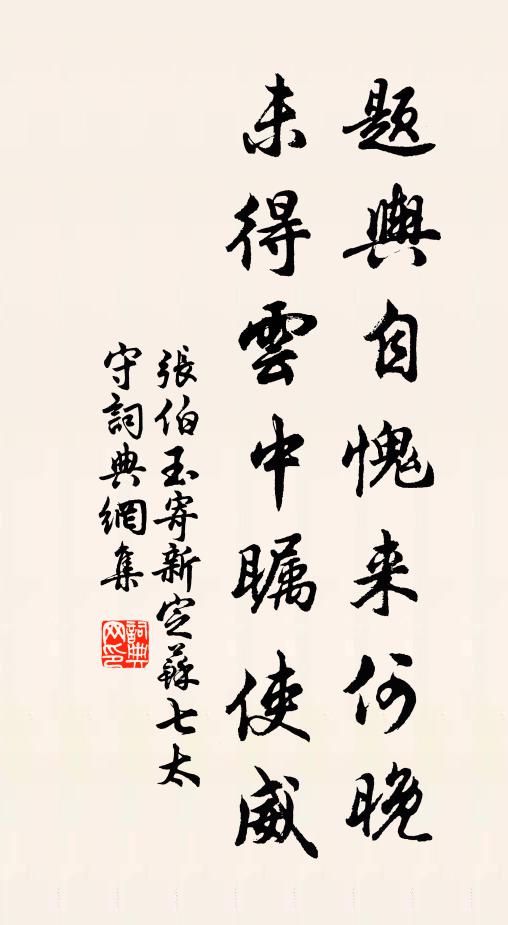 題輿自愧来何晚
未得雲中瞩使威
張伯玉寄新定蘇七太
守詞典網集
詞典
网印